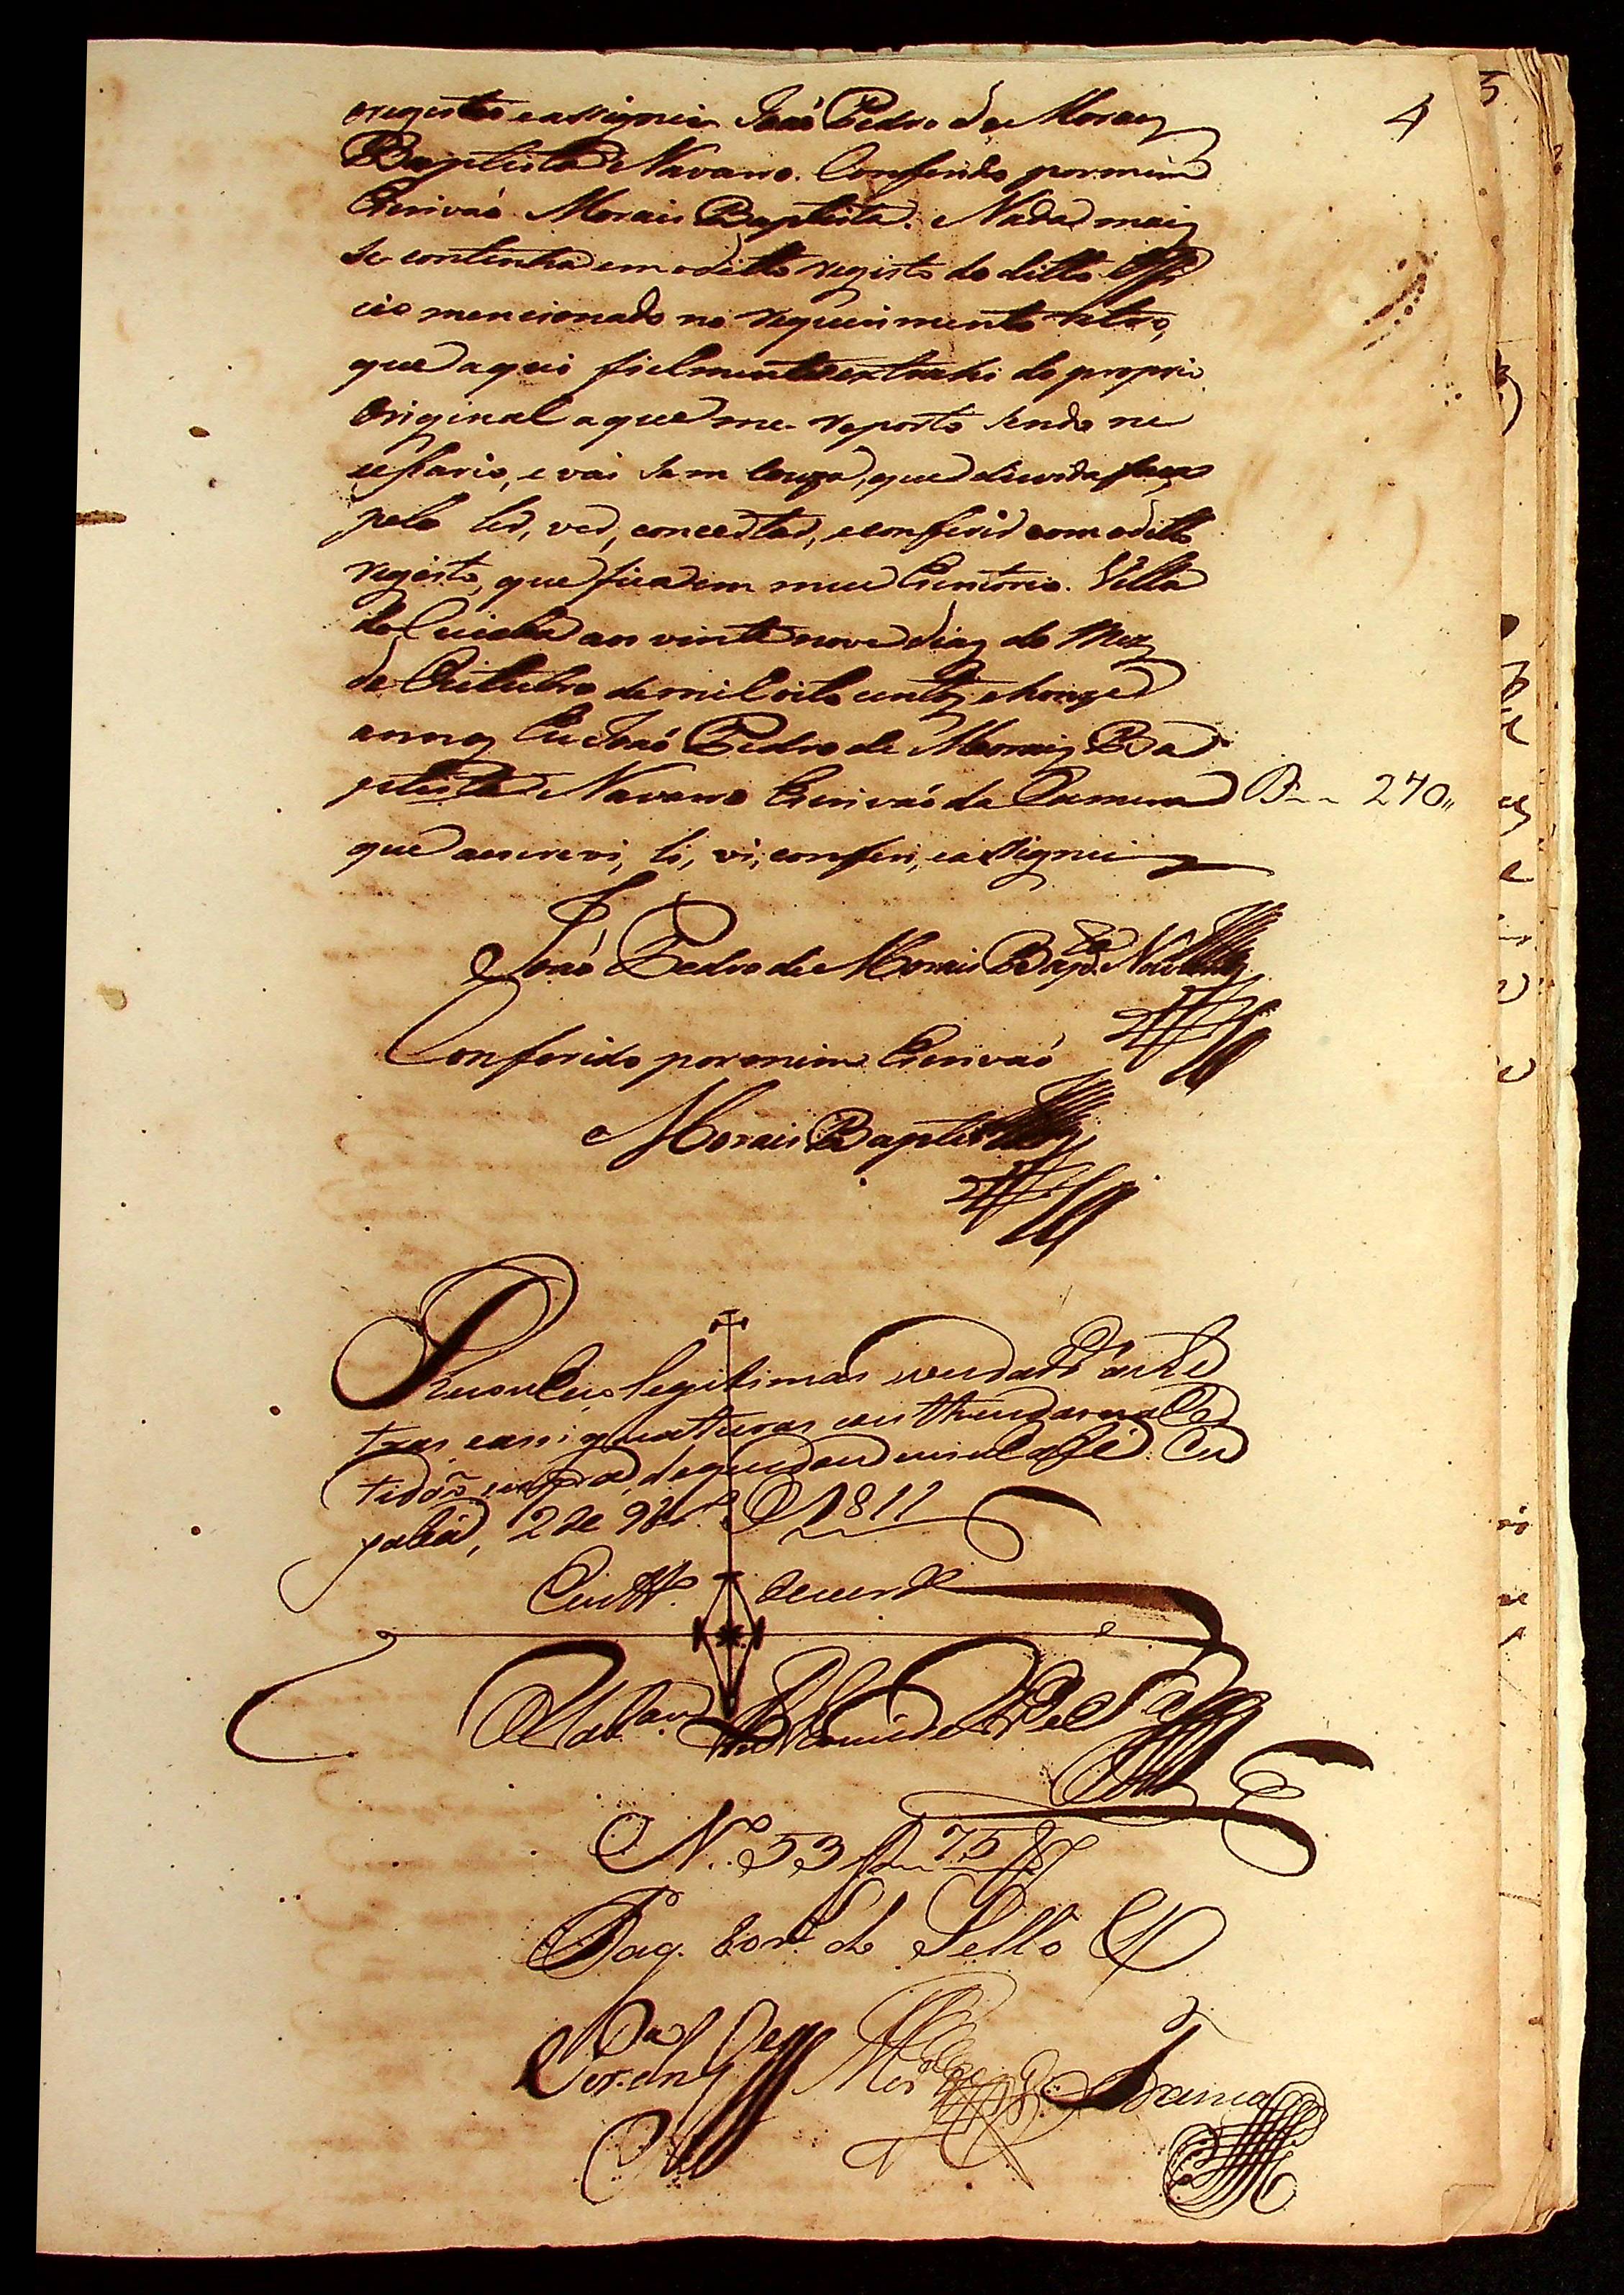 4
5
o registo e assignei João Pedro de Moraes
Baptista Navarro. Conferido por mim
Escrivaõ Morais Baptista. Nada mais
se continha em o ditto registo do ditto Offi
cio mencionado no requerimento retro,
que aqui fielmente extrahi do proprio
Original a que me reporto sendo ne
cessario, e vai sem couza, que duvida faça
pelo ler, ver, concertar, e conferir com o ditto
registo, que fica em meu Escritorio. Villa
do Cuiaba aos vinte nove dias do Mez
de Outubro de mil oito centos e honze
annos Eu João Pedro de Morais Ba
ptista Navarro Escrivaõ da Camara
que a escrevi, li, vi, conferi, e assignei
270
João Pedro de Morais Bapta. Navarro
Conferido por mim Escrivaõ
Morais Baptista
Reconheço legitimas verdadras as Le
tras e assignatturas
tidaõ supra, de que dou minha fé. Cu
yabá, 2 de 9br.º D 1811
Em tt.º de verde
N.º 53 75
Pag. de Sello
França